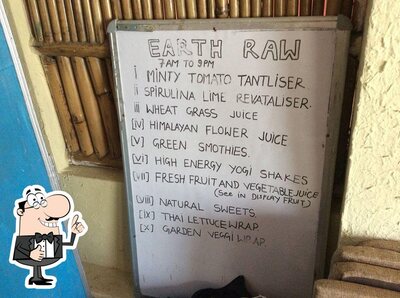 EARTH RAW
7 AM TO 9PM
i MINTY TOMATO TANTLISER
ii SPIRULINA LIME REVATALISER.
iii WHEAT GRASS JUICE
[iv] HIMALAYAN FLOWER JUICE
[v] GREEN SMOTHIES.
[vi] HIGH ENERGY YOGI SHAKES
[vii] FRESH FRUIT AND VEGETABLE JUICE
(See in DISPLAY FRUIT)
(viii) NATURAL SWEETS
[ix] THAI LETTUCE WRAP
[x] GARDEN VEGGI WRAP